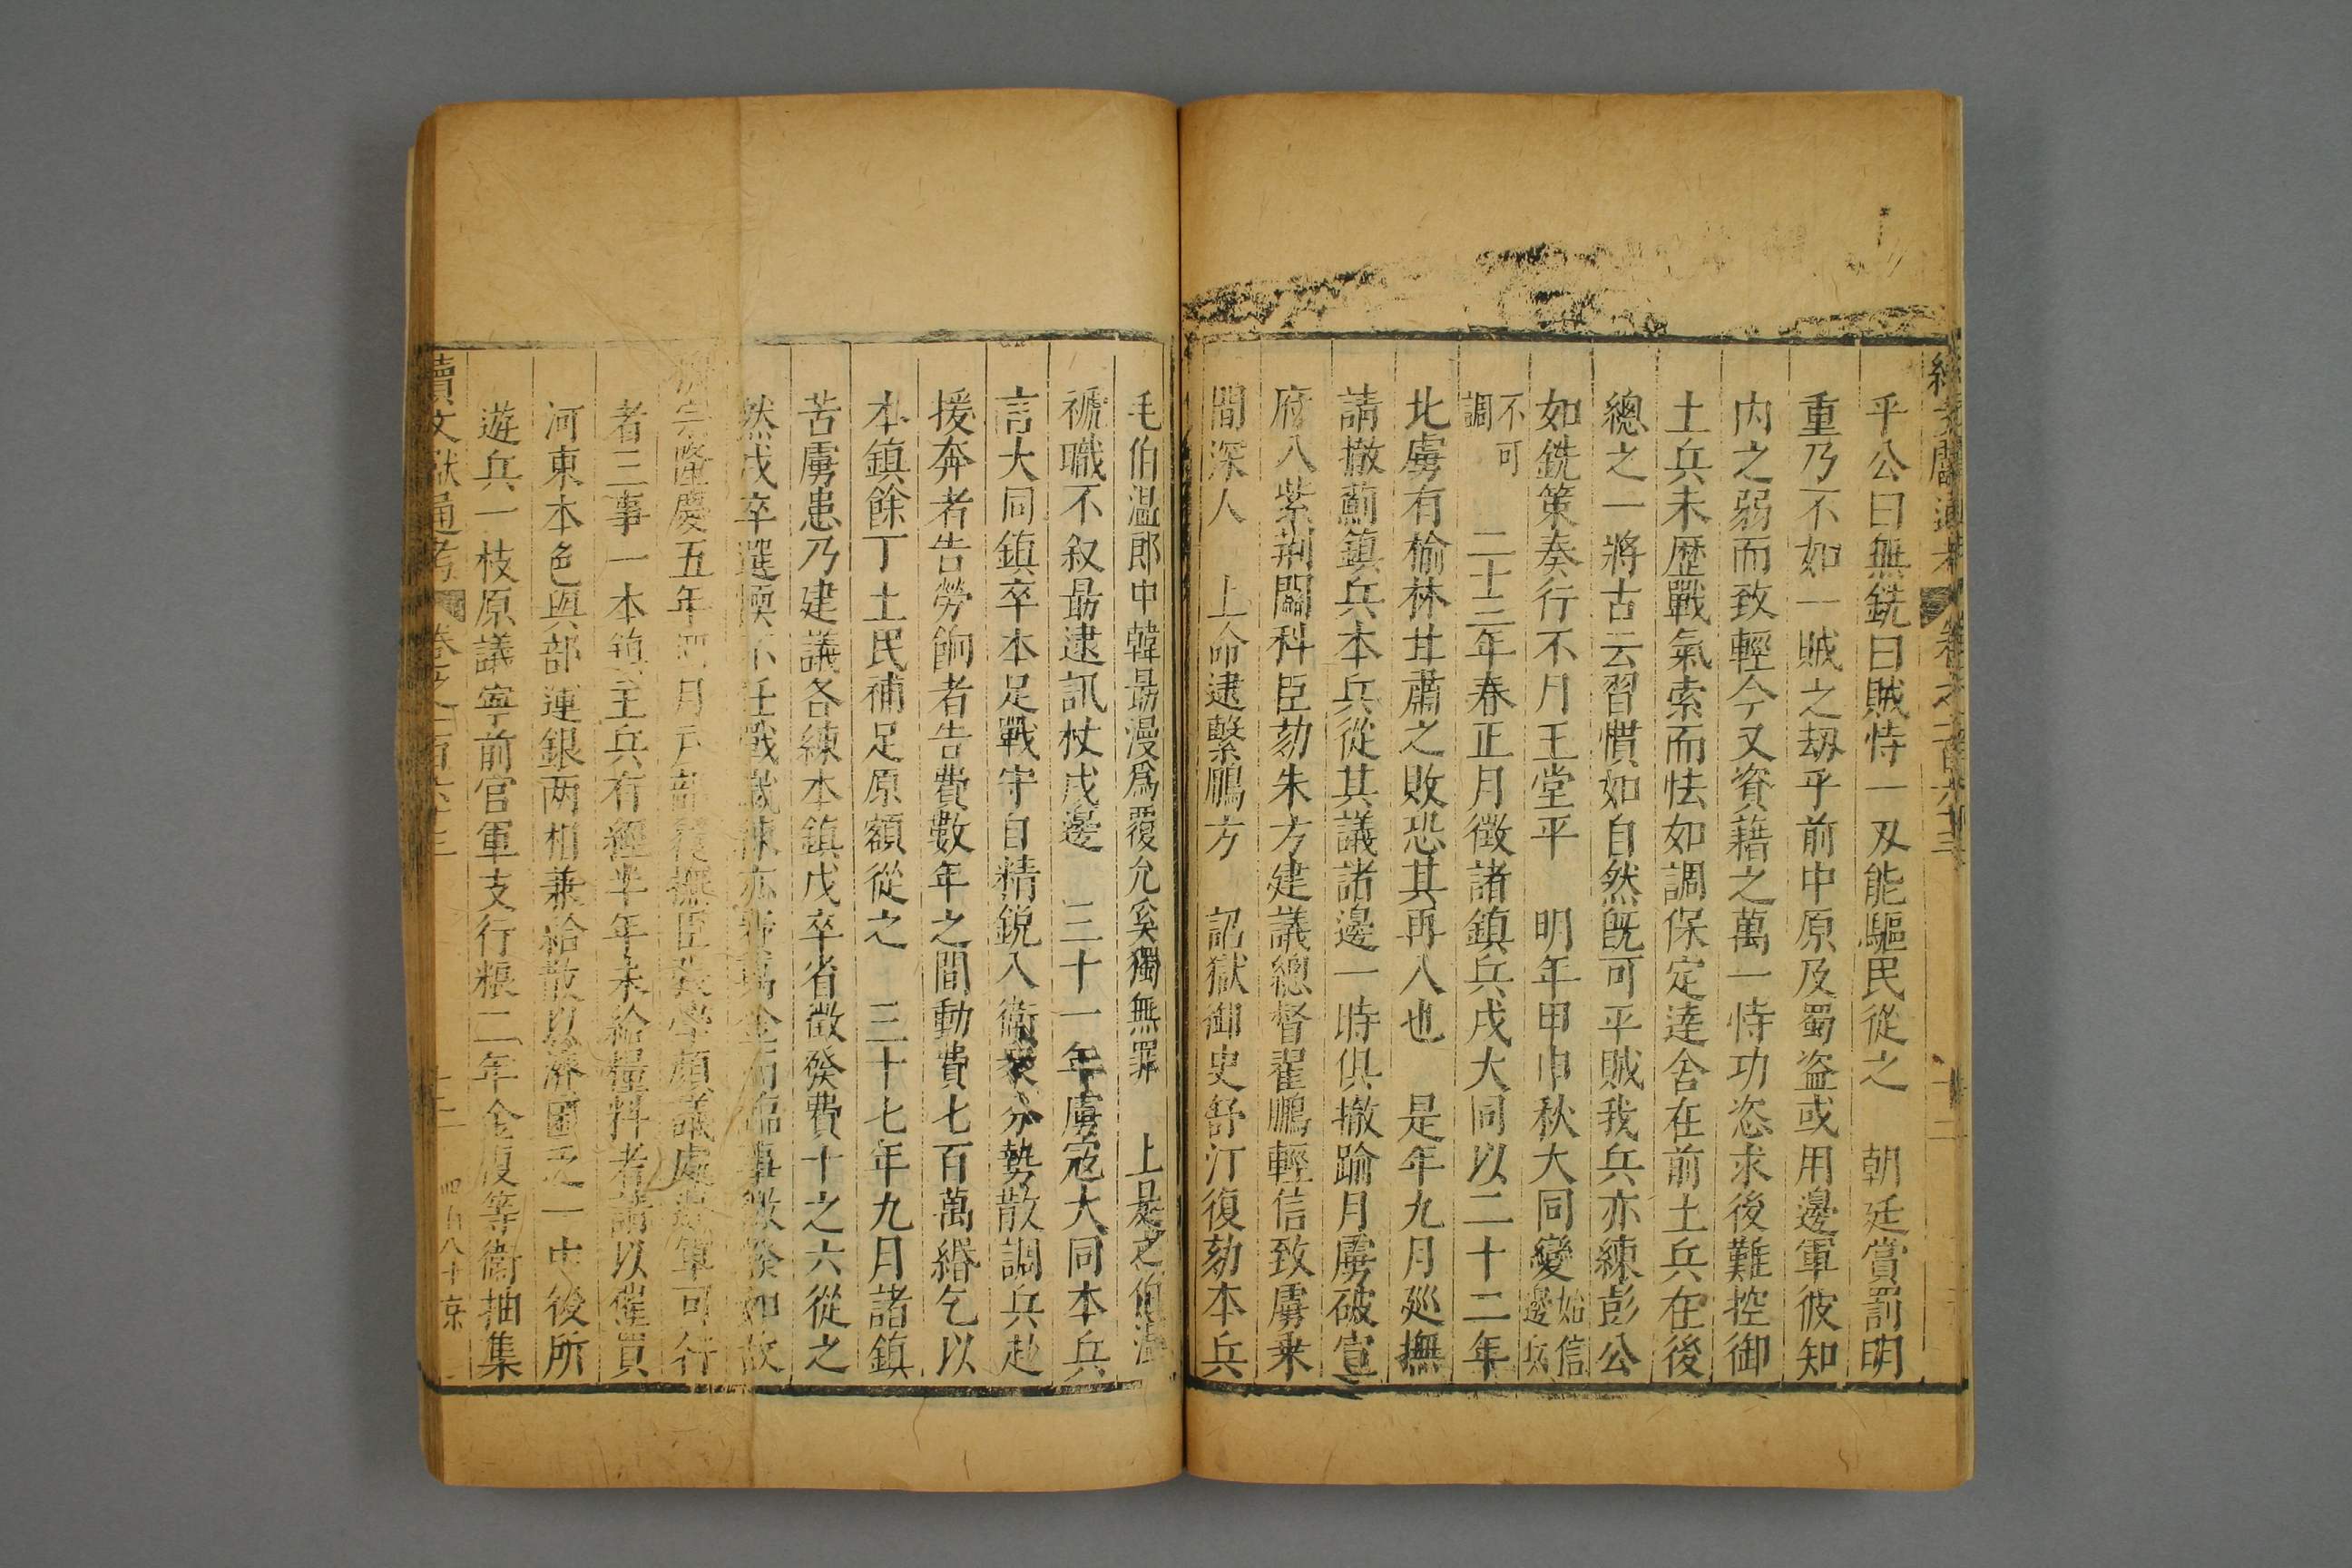 續文獻通考 卷之一百六十三 十二
乎公曰無銑曰賊恃一刄能驅民從之 朝廷賞罰明
重乃不如一賊之刼乎前中原及蜀盗或用邊軍彼知
内之弱而致輕今又資藉之萬一恃功恣求後難控御
土兵未歷戰氣索而怯如調保定達舍在前土兵在後
總之一將古云習慣如自然既可平賊我兵亦練彭公
如銑策奏行不月王堂平 明年甲申秋大同變始信邊兵
不可調 二十三年春正月徵諸鎮兵戍大同以二十二年
北虜有榆林甘肅之敗恐其再入也 是年九月廵撫
請撤薊鎮兵本兵從其議諸邊一時俱撤踰月虜破宣
府入紫荆關科臣劾朱方建議總督翟鵬輕信致虜乗
間深入 上命逮繫鵬方 詔獄御史舒汀復劾本兵
毛伯温郎中韓朂漫爲覆允奚獨無罪 上是之伯温
褫職不叙朂逮訊杖戍邊 三十一年虜寇大同本兵
言大同鎮卒本足戰守自精銳入衞衆分勢散調兵赴
援奔者告勞餉者告費數年之間動費七百萬緡乞以
本鎮餘丁土民補足原額從之 三十七年九月諸鎮
苦虜患乃建議各練本鎮戍卒省徵發費十之六從之
然戍卒選愞不任戰歲練亦費萬金而臨事徵發如故
穆宗隆慶五年 月戶部從撫臣張學顔議處 軍可行
者三事一本鎮主兵有經半年未給糧料者請以催買
河東本色與部運銀两相兼給散以濟困乏一中後所
遊兵一枝原議寧前官軍支行粮二年金復等衞抽集
續文獻通考 卷之一百六十三 十二 四百八十 京